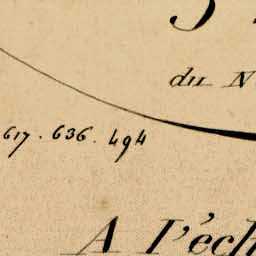 du N
617. 636. 494
A l'éch